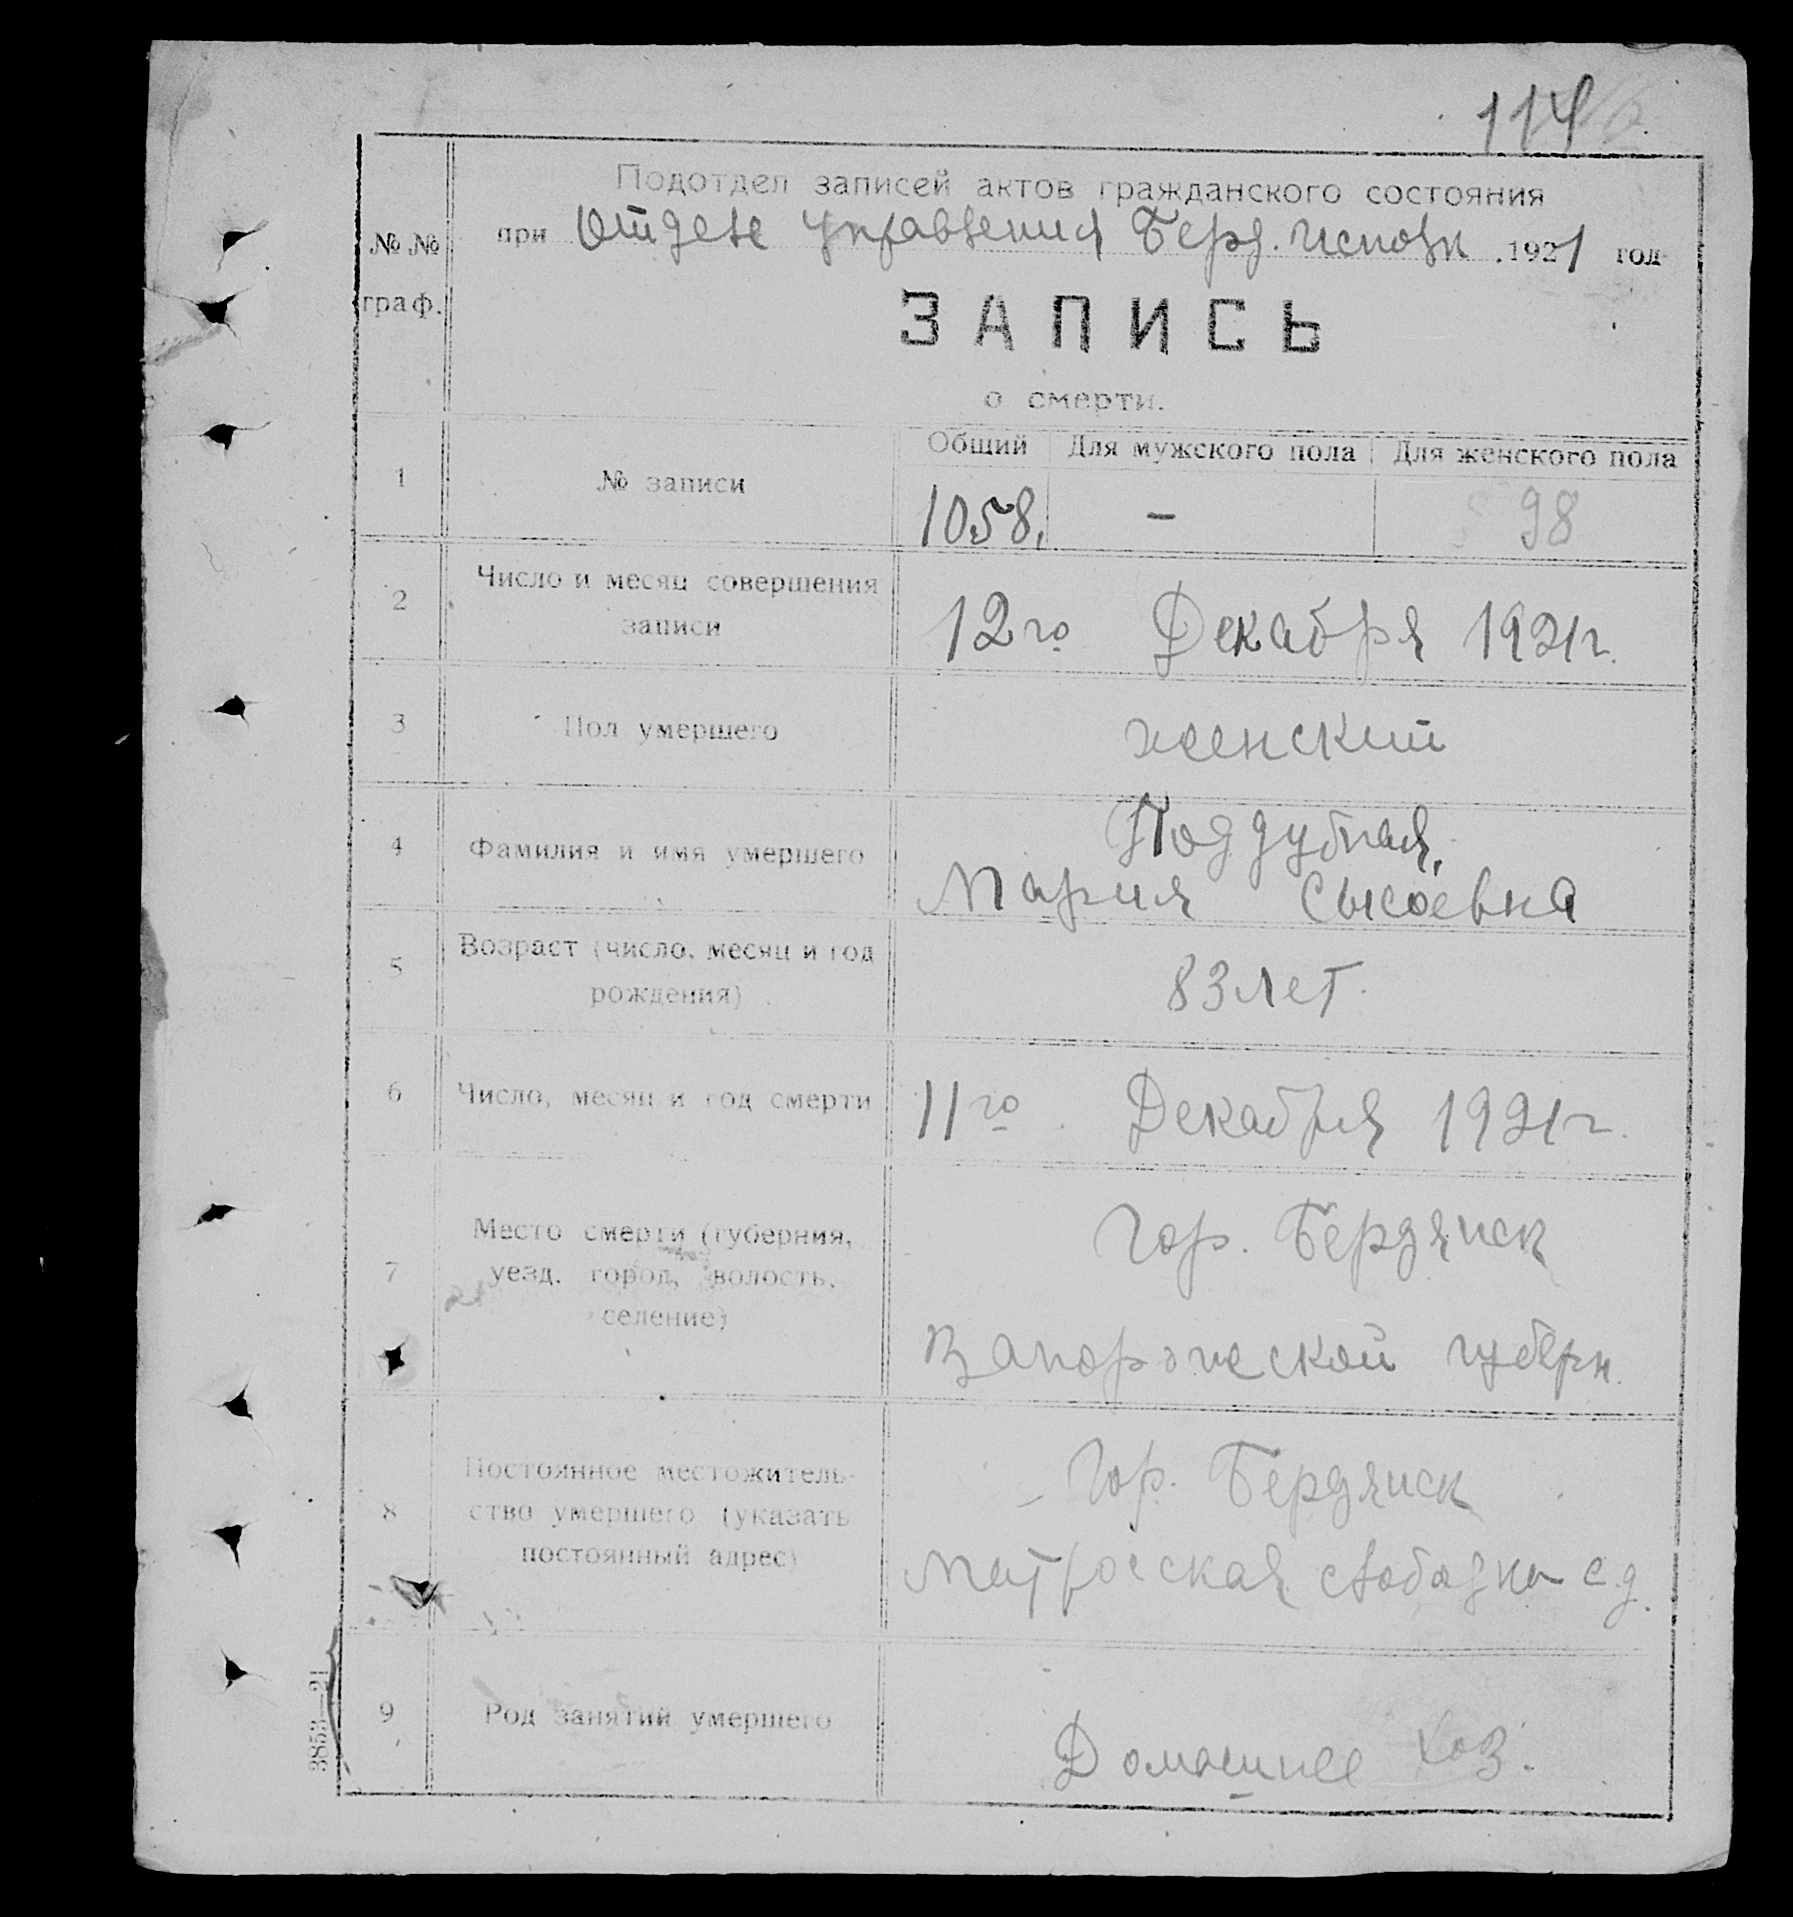 114
Подотдел записей актов гражданского состояния
при Отделе Управления Берд. Исполк .1921 год
№№
граф.
ЗАПИСЬ
о смерти.
Общий Для мужского пола Для женского пола
1 № записи 1058. - 98
2 Число и месяц совершения
записи
12го Декабря 1921г.
3 Пол умершего женский
4 Фамилия и имя умершего
Поддубная,
Мария Сысоевна
5 Возраст (число, месяц и год
рождения)
83 лет.
6 Число, месяц и год смерти 11го Декабря 1921г.
7 Место смерти (губерния,
уезд, город, волость,
селение)
Гор. Бердянск
Запорожеской губерн.
8 Постоянное местожитель-
ство умершего (указать
постоянный адрес)
Гор. Бердянск
Матросская слободка с.д.
9 Род занятий умершего Домашнее хоз.
3853—21